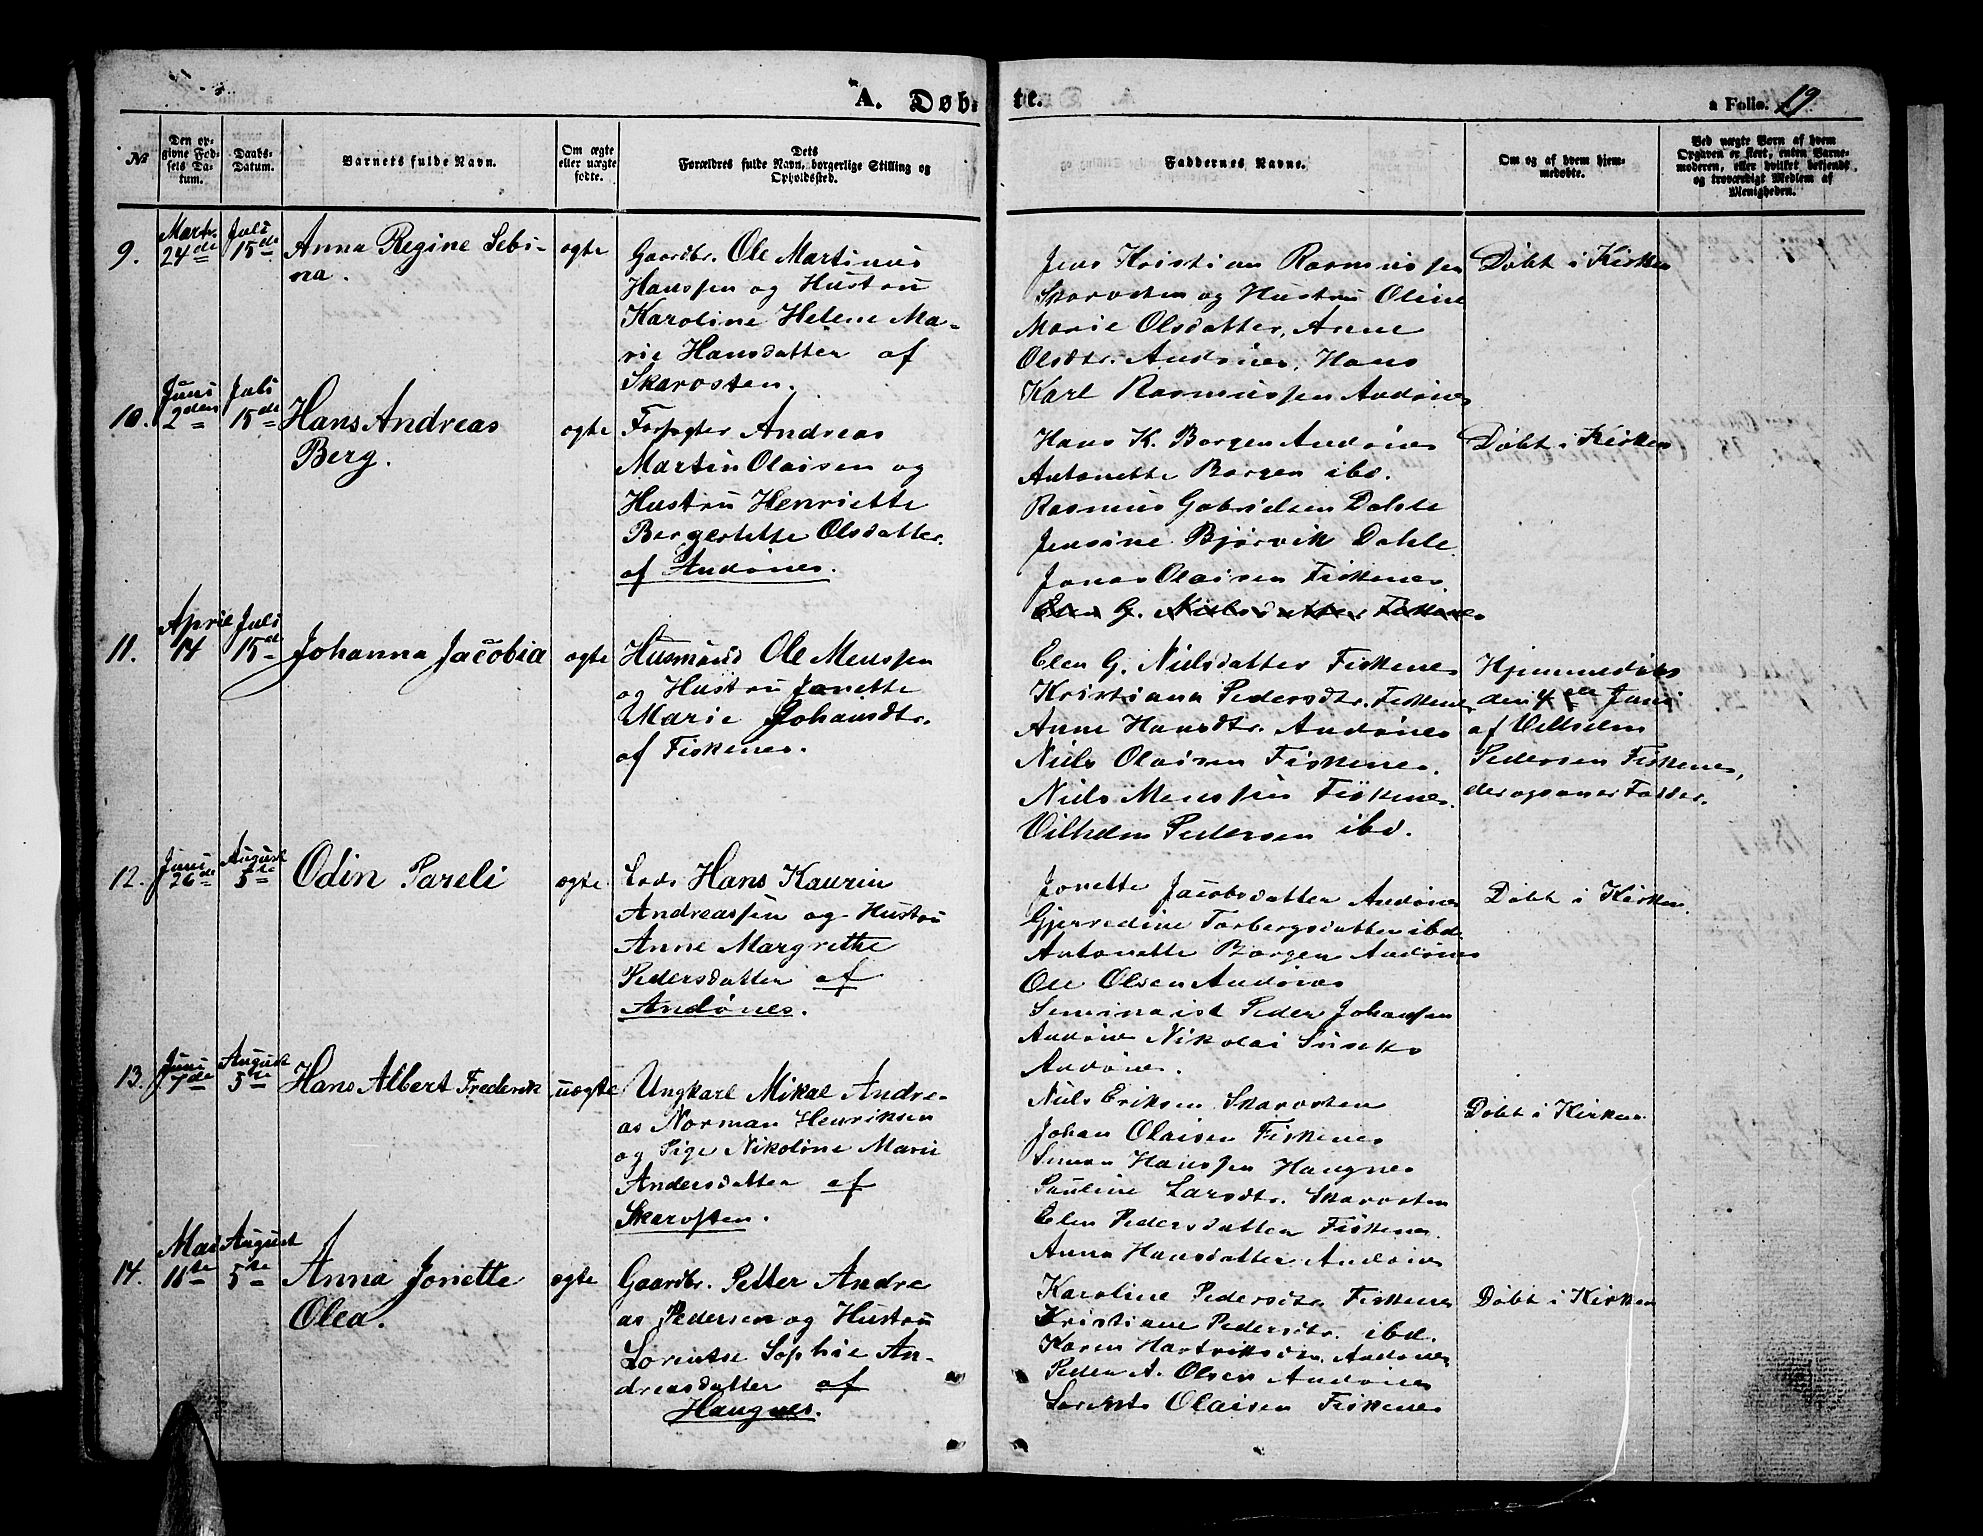 A. Døb-
te.
a Folio. 19
No
Den op-
givne Fød-
sels Da-
tum.
Daabs-
Datum.
Barnets fulde Navn.
Om ægte
eller uægte
fødte.
Dets
Forældres fulde Navn, borgerlige Stilling og
Opholdssted.
Faddernes Navne.
Om og af hvem hjem-
medøbte.
Ved uægte Børn af hvem
Opgaven er skeet, enten Barne-
moderen, eller hvilket bekjendt
og troværdigt Medlem af
Menigheden.
9.
Marts
24de
Juli
15de
Anna Regine Sebi-
na.
ægte
Gaardbr. Ole Martinus
Hanssen og Hustru
Karoline Helene Ma-
rie Hansdatter af
Skarvsten.
Jens Kristian Rasmussen
Skarvsten og Hustru Oline
Marie Olsdatter, Anne
Olsdtr. Andønes, Hans
Karl Rasmussen Andønes
Døbt i Kirken
10.
Juni
2den
Juli
15de
Hans Andreas
Berg.
ægte
Forpagter Andreas
Martin Olaisen og
Hustru Henriette
Bergestette Olsdatter.
af Andønes.
Hans K. Borgen Andønes
Antonette Borgen ibd.
Rasmus Gabrielsen Dahle
Jensine Bjørvik Dahle.
Jonas Olaisen Fiskenes
Elen G. Nielsdatter Fiskenes
Døbt i Kirken
11.
April
14
Juli
15de
Johanna Jacobia
ægte
Husmand Ole Menssen
og Hustru Jonette
Marie Johansdtr.
af Fiskenes.
Elen G. Nielsdatter Fiskenes
Kristiana Pedersdtr. Fiskenes
Anne Hansdtr. Andønes
Niels Olaisen Fiskenes.
Niels Menssen Fiskenes.
Vilhelm Pedersen ibd.
Hjemmedøbt
den Juni
af Vilhelm
Pedersen Fiskenes,
der ogsaa er Fadder.
12.
Juni
26de
August
5te
Odin Pareli
ægte.
Lods Hans Kaurin
Andreassen og Hustru
Anne Margrethe
Pedersdatter af
Andønes.
Jonette Jacobsdatter Andønes
Gjerredine Torbergsdatter ibd.
Antonette Borgen Andønes
Ole Olsen Andønes
Seminarist Peder Johansen
Andønes Nikolai
Andønes.
Døbt i Kirken.
13.
Juni
7de
August
5te
Hans Albert Frederik
uægte
Ungkarl Mikal Andre-
as Norman Henriksen
og Pige Nikoline Marie
Andersdatter af
Skarvsten.
Niels Eriksen Skarvsten
Johan Olaisen Fiskenes
Simon Hanssen Haugnes
Pauline Larsdtr. Skarvsten
Elen Pedersdatter Fiskenes.
Anna Hansdatter Andønes
Døbt i Kirken.
14.
Mai
16te
August
5te
Anna Jonette
Olea.
ægte
Gaardbr. Petter Andre
as Pedersen og Hustru
Lorentse Sophie An-
dreasdatter af
Haugnes.
Karoline Pedersdtr. Fiskenes
Kristiane Pedersdtr. ibd.
Karen Hartviksdtr. Andønes
Peder A. Olsen Andønes
Lorents Olaisen Fiskenes
Døbt i Kirken